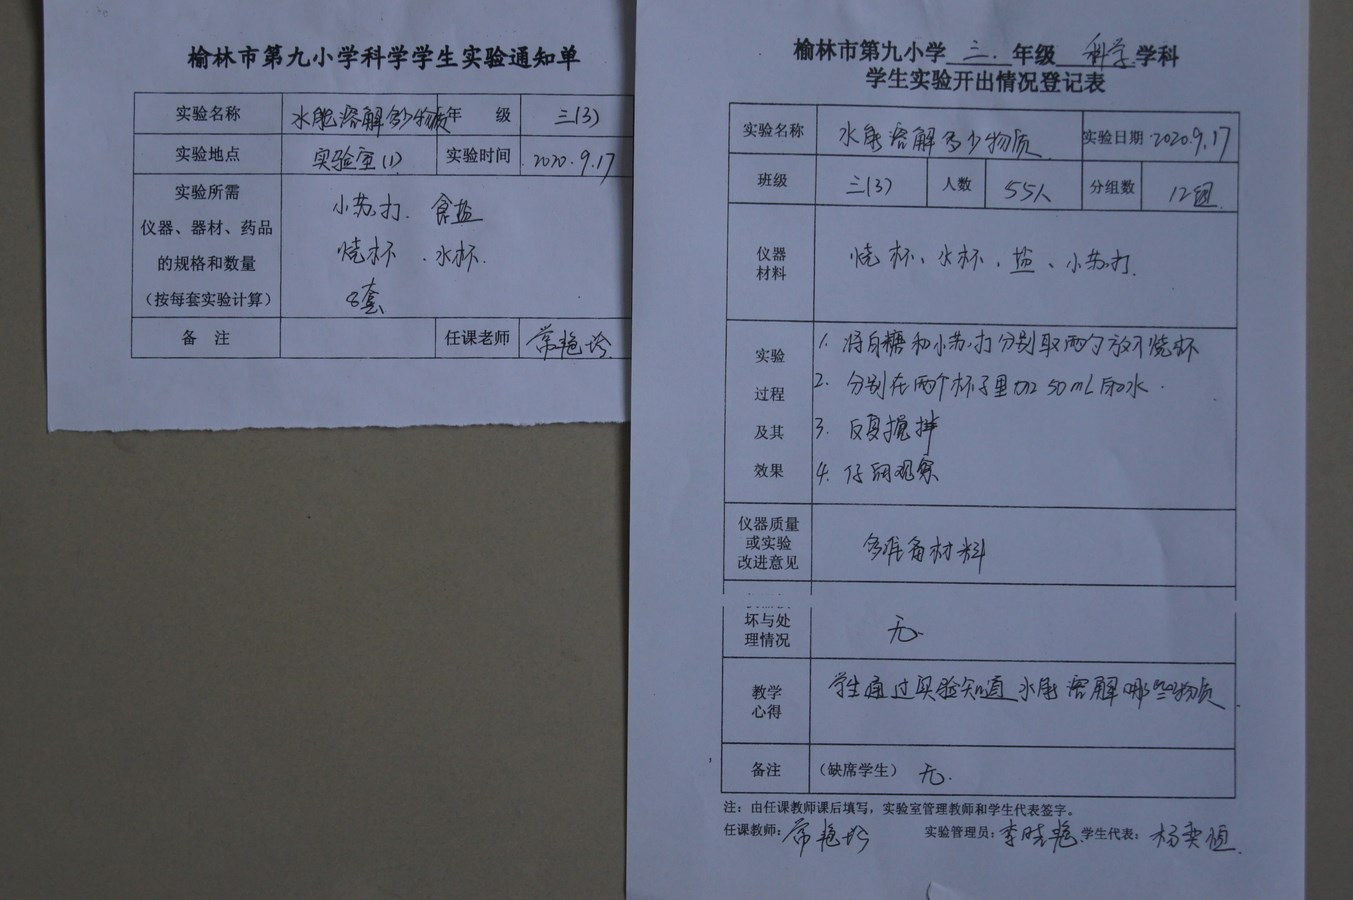 榆林市第九小学科学学生实验通知单
实验名称 水能溶解多少物质 年 级 三(3)
实验地点 实验室(1) 实验时间 2020.9.17
实验所需
仪器、器材、药品
的规格和数量
（按每套实验计算）
小苏打. 食盐
烧杯 . 水杯.
8套
备 注 任课老师 常艳玲
榆林市第九小学 三. 年级 科学 学科
学生实验开出情况登记表
实验名称 水能溶解多少物质. 实验日期 2020.9.17
班级 三(3) 人数 55人 分组数 12组.
仪器
材料
烧杯、水杯、盐、小苏打.
实验
过程
及其
效果
1. 将白糖和小苏打分别取两勺放入烧杯
2. 分别在两个杯子里加50mL的水.
3. 反复搅拌
4. 仔细观察
仪器质量
或实验
改进意见
多准备材料
坏与处
理情况
无.
教学
心得
学生通过实验知道水能溶解哪些物质.
备注 （缺席学生） 无.
注：由任课教师课后填写，实验室管理教师和学生代表签字。
任课教师：常艳玲 实验管理员：李晓艳 学生代表：杨奕恒.